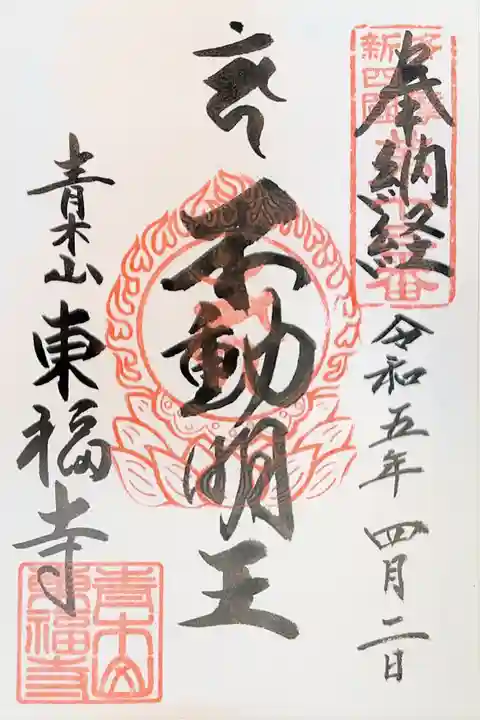 奉納経
令和五年 四月二日
不動明王
青木山 東福寺
青木山
東福寺